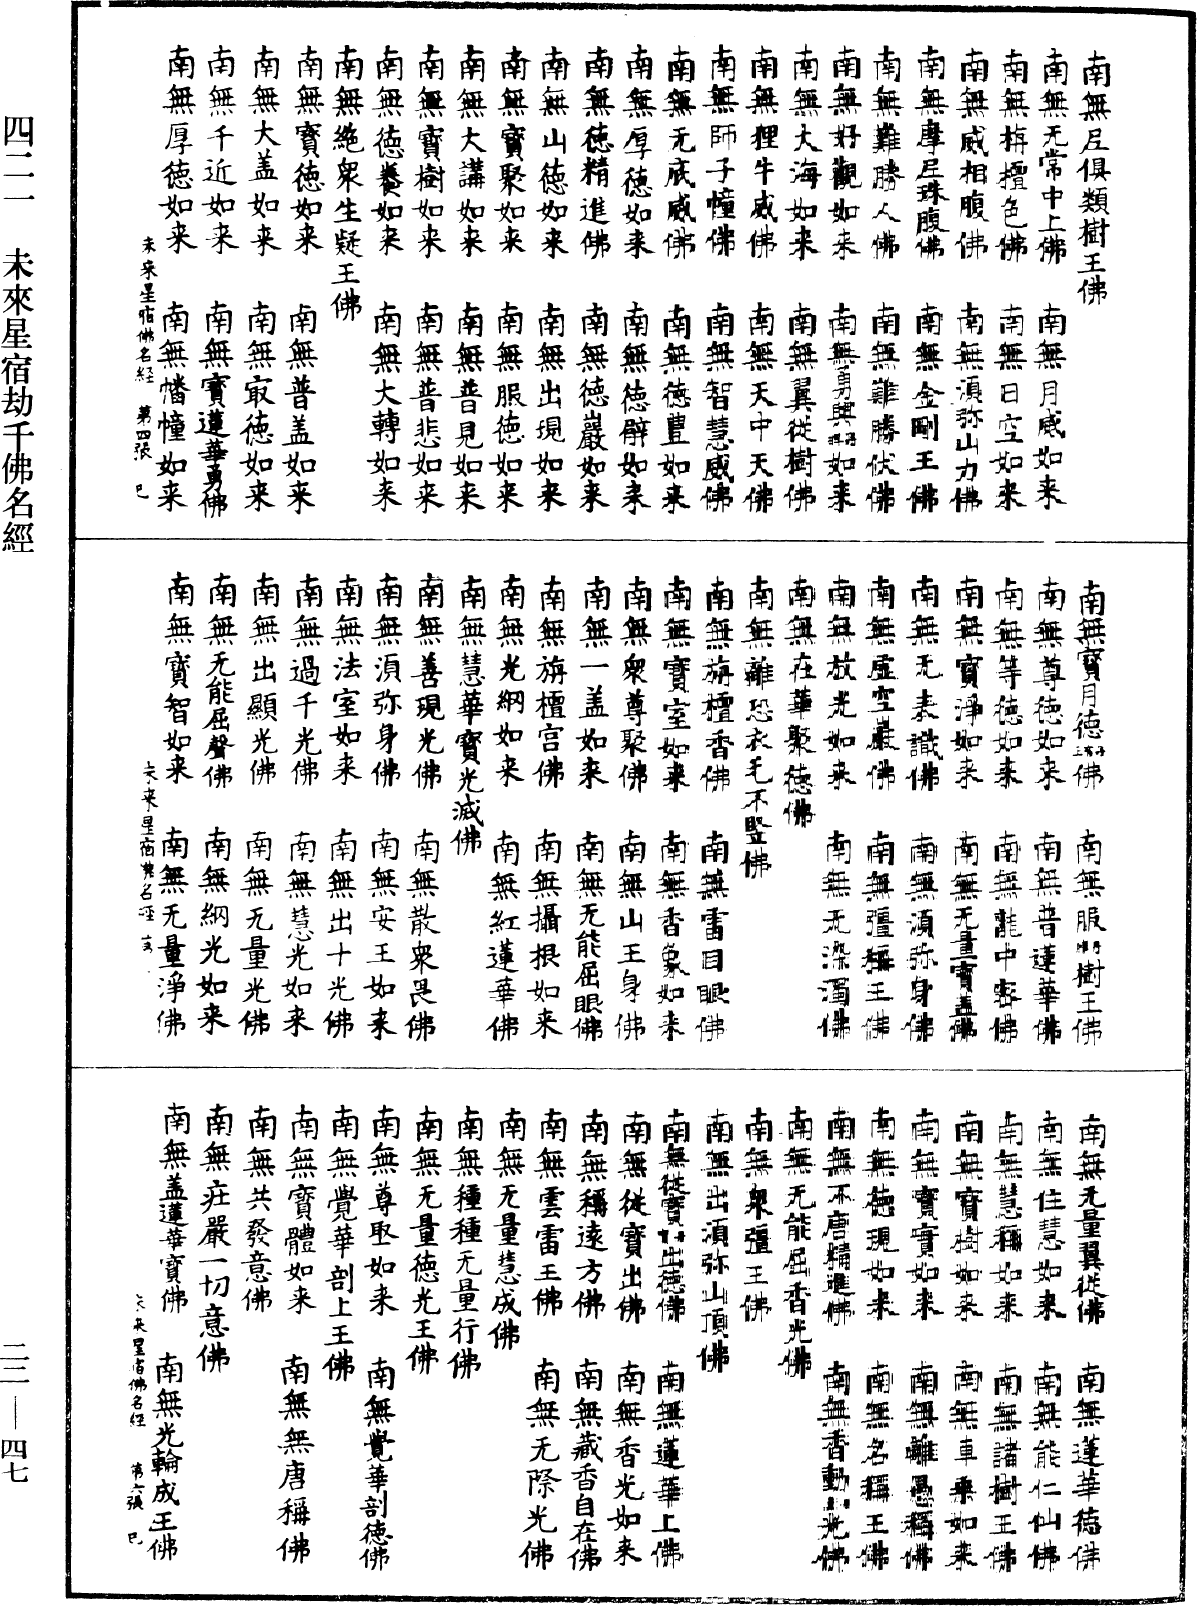 南無尼俱類樹王佛
南無无常中上佛　南無月威如来
南無栴檀色佛　南無日空如来
南無威相腹佛　南無湏弥山力佛
南無摩尼珠腹佛　南無金剛王佛
南無難勝人佛　南無難勝伏佛
南無好觀如来　南無勇興如来
南無大海如来　南無翼從樹佛
南無狸牛威佛　南無天中天佛
南無師子幢佛　南無智慧威佛
南無无底威佛　南無德豊如来
南無厚德如来　南無德辟如来
南無德精進佛　南無德巖如来
南無山德如来　南無出現如来
南無寳聚如来　南無服德如来
南無大講如来　南無普見如来
南無寳樹如来　南無普悲如来
南無德養如来　南無大轉如来
南無絶衆生疑王佛
南無寳德如来　南無普盖如来
南無大盖如来　南無㝡德如来
南無千近如来　南無寳蓮華勇佛
南無厚德如来　南無幡幢如来
未来星宿佛名經　第四張　巳
南無寳月德佛　南無服樹王佛
南無尊德如来　南無普蓮華佛
南無等德如来　南無龍中密佛
南無寳淨如来　南無无量寳盖佛
南無无表識佛　南無湏弥身佛
南無虛空嚴佛　南無彊稱王佛
南無放光如来　南無无染濁佛
南無在華聚德佛
南無離恐衣毛不竪佛
南無旃檀香佛　南無雷目眼佛
南無寳室如来　南無香象如来
南無衆尊聚佛　南無山王身佛
南無一盖如来　南無无能屈眼佛
南無旃檀宫佛　南無攝根如来
南無光網如来　南無紅蓮華佛
南無慧華寳光滅佛
南無善現光佛　南無散衆畏佛
南無湏弥身佛　南無安王如来
南無法室如来　南無出十光佛
南無過千光佛　南無慧光如来
南無出顯光佛　南無无量光佛
南無无能屈聲佛　南無網光如来
南無寳智如来　南無无量淨佛
未来星宿名經
南無无量翼從佛　南無蓮華德佛
南無住慧如来　南無能仁仙佛
南無慧稱如来　南無諸樹王佛
南無寳樹如来　南無車乗如来
南無寳實如来　南無離愚稱佛
南無德現如来　南無名稱王佛
南無不唐精進佛　南無香動光佛
南無无能屈香光佛
南無衆彊王佛
南無出湏弥山頂佛
南無從寳出德佛　南無蓮華上佛
南無從寳出佛　南無香光如来
南無稱遠方佛　南無藏香自在佛
南無雲雷王佛　南無无際光佛
南無无量慧成佛
南無種種无量行佛
南無无量德光王佛
南無尊㝡如来　南無覺華剖德佛
南無覺華剖上王佛
南無寳體如来　南無無唐稱佛
南無共發意佛
南無庄嚴一切意佛
南無盖蓮華寳佛　南無光輪成王佛
未来星宿佛名經　第六張　巳
四二一　未來星宿劫千佛名經
二二—四七